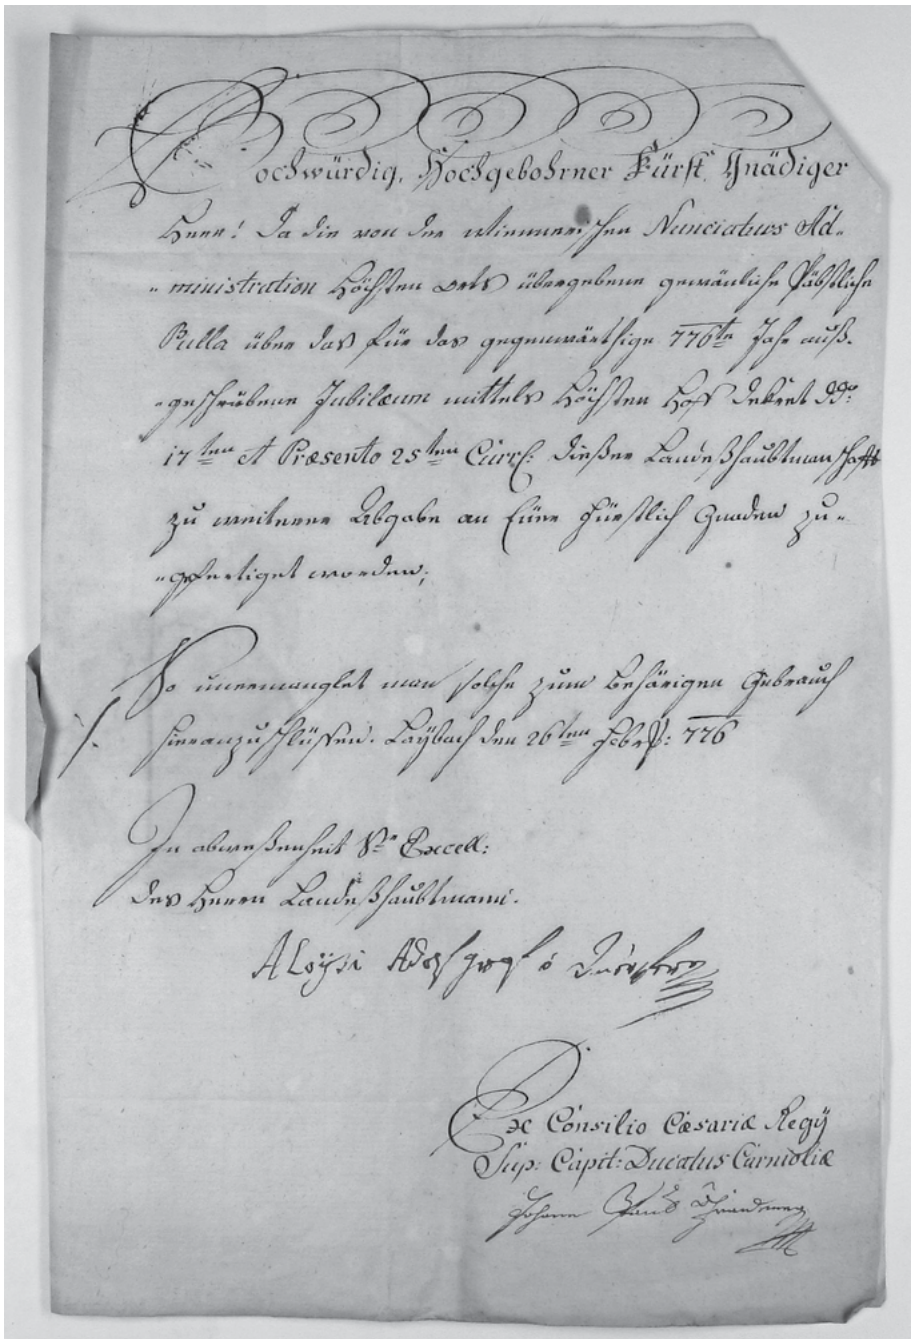 Hochwürdig, Hochgebohrner Fürst, Gnädiger
Herr! Da die von der Wiennerischen Nunciaturs Ad-
-ministration Höchsten orts übergebene gewönliche Päbstliche
Bulla über das für das gegenwärthige 776te Jahr auß-
-geschribene Jubilæum mittels Höchsten Hof Dekret ddo:
17ten et Præsento 25ten Curr: dießer Landeßhaubtmanschaft
zu weiterer Abgabe an Eüer Fürstlich Gnaden zu-
-gefertiget worden;
So unermanglet man solche zum behörigen Gebrauch
hieranzuschlüssen. Laÿbach den 26ten Febr: 776
In abweßenheit Sr Excell:
des Herrn Landeßhaubtmann.
Aloysi Adolf Graf v Auersperg
Ex Consilio Cæsariæ Regÿ
Sup: Capit: Ducatus Carnioliæ
Johann